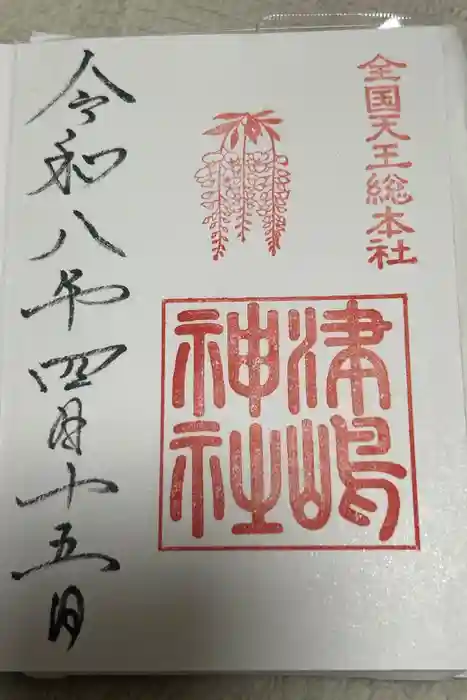 全国天王総本社
津嶋
神社
令和八年四月十五日